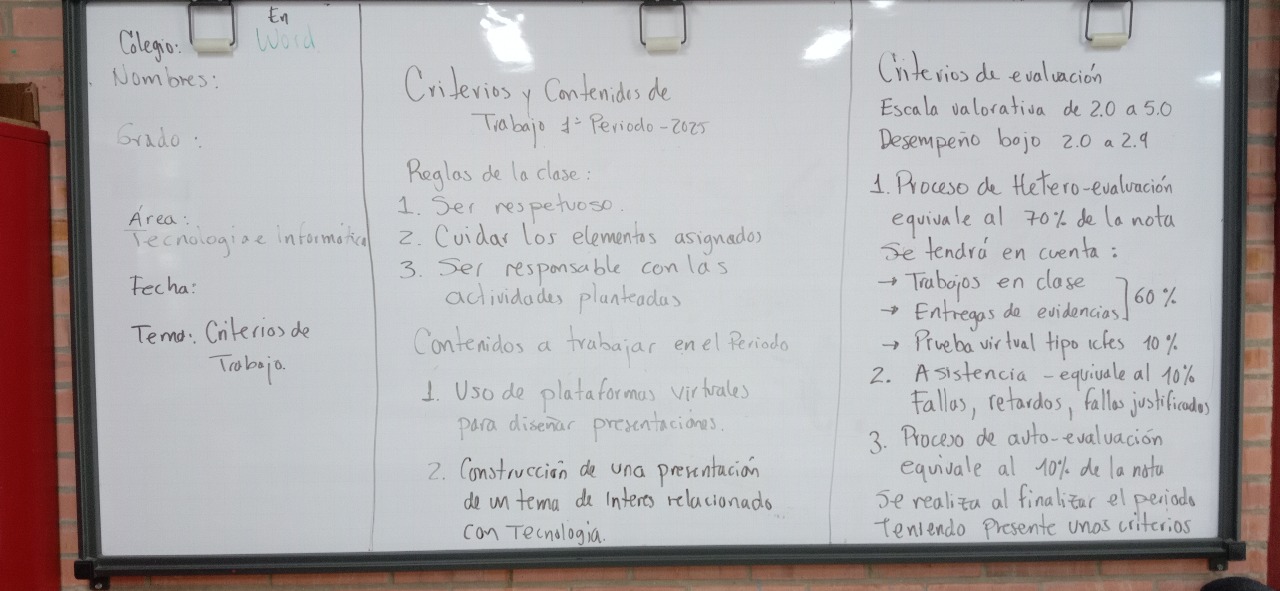 En
Word
Colegio:
Nombres:
Grado:
Área:
Tecnologia e informática
Fecha:
Tema: Criterios de
Trabajo.
Criterios y Contenidos de
Trabajo 1º Periodo - 2025
Reglas de la clase:
1. Ser respetuoso.
2. Cuidar los elementos asignados
3. Ser responsable con las
actividades planteadas
Contenidos a trabajar en el Periodo
1. Uso de plataformas virtuales
para diseñar presentaciones.
2. Construcción de una presentación
de un tema de interes relacionado
con Tecnologia.
Criterios de evaluación
Escala valorativa de 2.0 a 5.0
Desempeño bajo 2.0 a 2.9
1. Proceso de Hetero-evaluación
equivale al 70% de la nota
Se tendrá en cuenta:
→ Trabajos en clase
→ Entregas de evidencias] 60%
→ Prueba virtual tipo icfes 10%
2. Asistencia - equivale al 10%
Fallas, retardos, fallas justificadas
3. Proceso de auto-evaluación
equivale al 10% de la nota
Se realiza al finalizar el periodo
Teniendo presente unos criterios